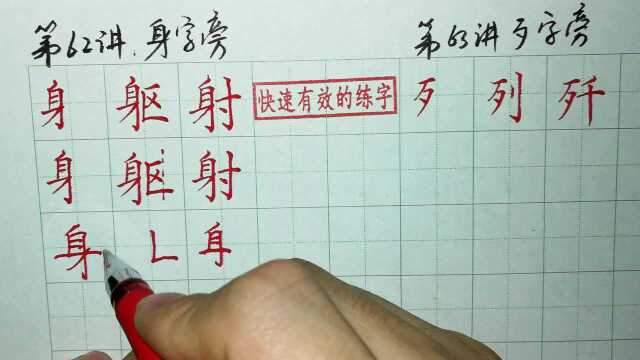 第62讲.身字旁 第63讲歹字旁
身 躯 射 快速有效的练字 歹 列 歼
身 躯 射
身 L 身